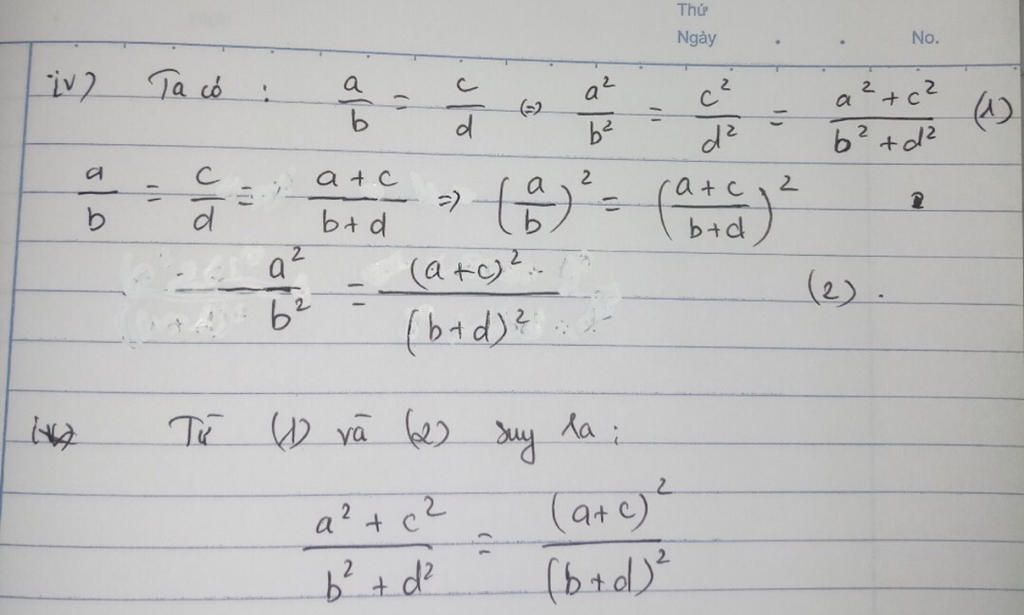 Thứ
Ngày . . No.
iv) Ta có : a/b = c/d (=) a²/b² = c²/d² = (a² + c²)/(b² + d²) (1)
a/b = c/d = (a + c)/(b + d) => (a/b)² = ((a + c)/(b + d))²
a²/b² = (a + c)²/(b + d)² (2) .
Từ (1) và (2) suy ra :
(a² + c²)/(b² + d²) = (a + c)²/(b + d)²